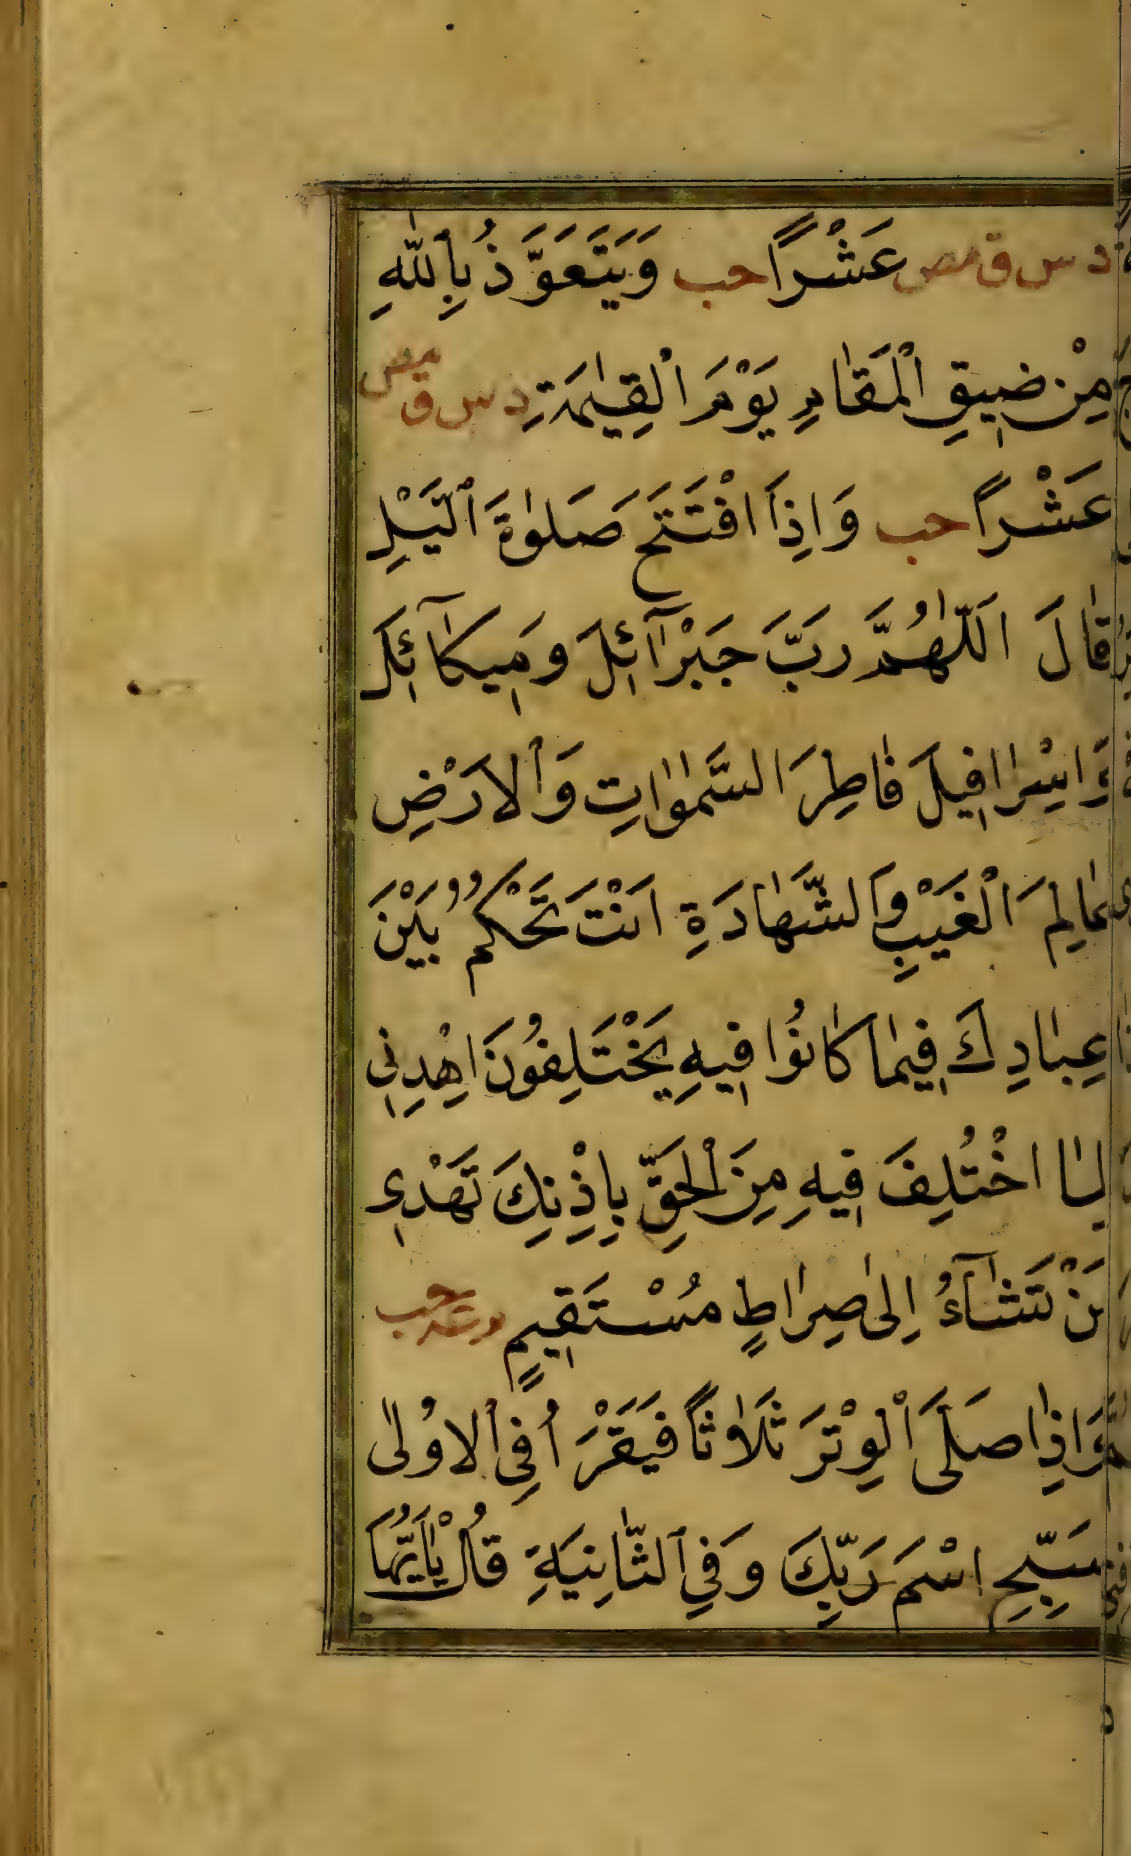 د س ق مص عَشْرًا حب وَيَتَعَوَّذُ بِاللّٰهِ
مِنْ ضِيقِ الْمَقَامِ يَوْمَ الْقِيٰمَةِ د س ق مص
عَشْرًا حب وَاِذَا افْتَتَحَ صَلٰوةَ الَّيْلِ
قَالَ اَللّٰهُمَّ رَبَّ جَبْرَآئِلَ وَمِيكَآئِلَ
وَاِسْرَافِيلَ فَاطِرَ السَّمٰوَاتِ وَالْاَرْضِ
عَالِمَ الْغَيْبِ وَالشَّهَادَةِ اَنْتَ تَحْكُمُ بَيْنَ
عِبَادِكَ فِيمَا كَانُوا فِيهِ يَخْتَلِفُونَ اِهْدِنِي
لِمَا اخْتُلِفَ فِيهِ مِنَ الْحَقِّ بِاِذْنِكَ تَهْدِي
مَنْ تَشَآءُ اِلٰى صِرَاطٍ مُسْتَقِيمٍ حب
وَاِذَا صَلَّى الْوِتْرَ ثَلَاثًا فَيَقْرَأُ فِي الْاُولٰى
سَبِّحِ اسْمَ رَبِّكَ وَفِي الثَّانِيَةِ قُلْ يٰاَيُّهَا